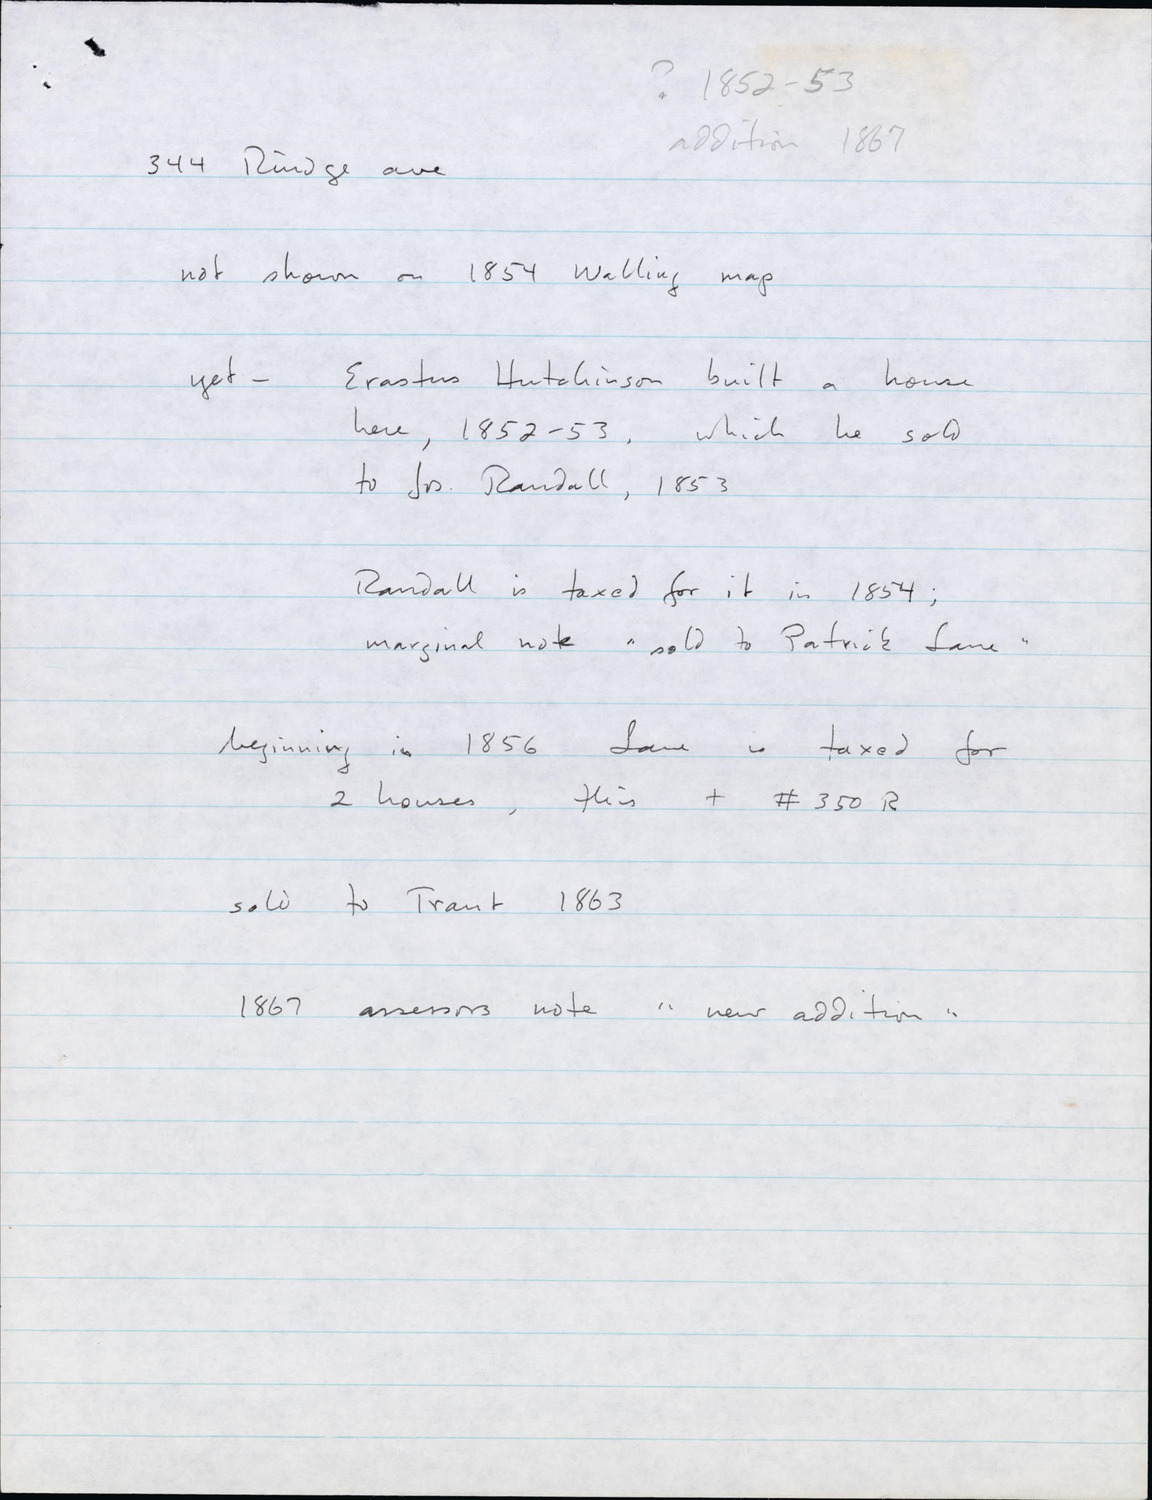 ? 1852-53
addition 1867
344 Rindge ave
not shown on 1854 Walling map
yet - Erastus Hutchinson built a house
here, 1852-53, which he sold
to Jos. Randall, 1853
Randall is taxed for it in 1854;
marginal note "sold to Patrick Lane"
beginning in 1856 Lane is taxed for
2 houses, this + # 350 R
sold to Trant 1863
1867 assessors note "new addition"